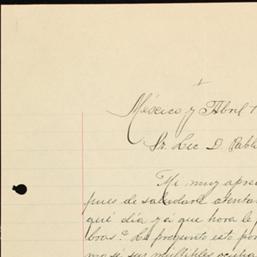 México y Abril 1
Sr. Lic D. Pabl
Mi muy apre
pues de saludarle atenta
qué día y a que hora le p
bras? La pregunto esto por
sus multiples ocupa